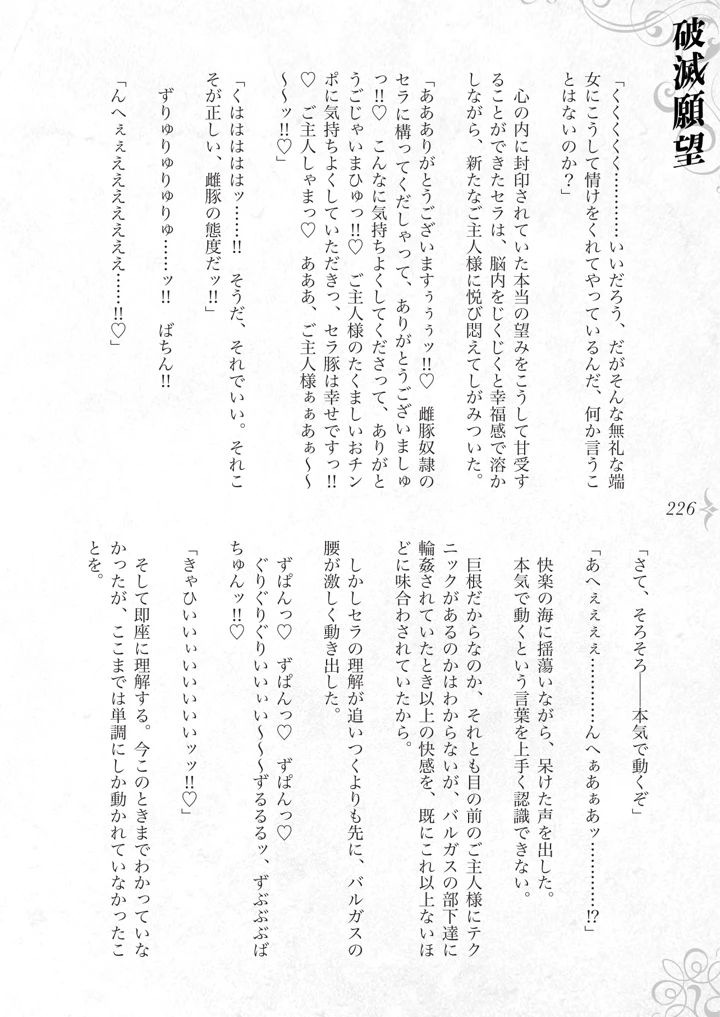 破滅願望
「くくくくく…………いいだろう、だがそんな無礼な端
女にこうして情けをくれてやっているんだ、何か言うこ
とはないのか？」
心の内に封印されていた本当の望みをこうして甘受す
ることができたセラは、脳内をじくじくと幸福感で溶か
しながら、新たなご主人様に悦び悶えてしがみついた。
「あああありがとうございますぅぅぅッ!!♡　雌豚奴隷の
セラに構ってくだしゃって、ありがとうございましゅ
っ!!♡　こんなに気持ちよくしてくださって、ありがと
うごじゃいまひゅっ!!♡　ご主人様のたくましいおチン
ポに気持ちよくしていただきっ、セラ豚は幸せですっ!!
♡　ご主人しゃまっ♡　あああ、ご主人様ぁぁあぁ～～
～～ッ!!♡」
「くはははははッ……!!　そうだ、それでいい。それこ
そが正しい、雌豚の態度だッ!!」
ずりゅりゅりゅりゅ……ッ!!　ばちん!!
「んへぇぇええええええぇ……!!♡」
226
「さて、そろそろ――本気で動くぞ」
「あへぇぇぇぇ…………んへぁあぁあッ…………!?」
快楽の海に揺蕩いながら、呆けた声を出した。
本気で動くという言葉を上手く認識できない。
巨根だからなのか、それとも目の前のご主人様にテク
ニックがあるのかはわからないが、バルガスの部下達に
輪姦されていたとき以上の快感を、既にこれ以上ないほ
どに味合わされていたから。
しかしセラの理解が追いつくよりも先に、バルガスの
腰が激しく動き出した。
ずぱんっ♡　ずぱんっ♡　ずぱんっ♡
ぐりぐりぐりいいぃい～～～ずるるるッ、ずぶぶぶば
ちゅんッ!!♡
「きゃひいいぃいいいいいいッッ!!♡」
そして即座に理解する。今このときまでわかっていな
かったが、ここまでは単調にしか動かれていなかったこ
とを。